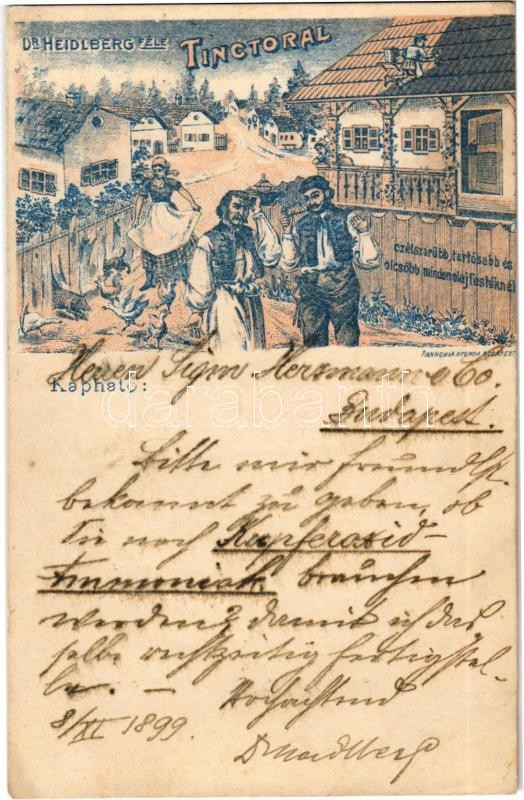 Dr. HEIDLBERG FÉLE TINCTORAL
czélszerűbb, tartósabb és
olcsóbb minden olajfestéknél
PANNONIA NYOMDA BUDAPEST.
Herren Sigm Herzmann & Co.
Kapható:
darabanth.com
Budapest.
Bitte mir freundlst.
bekannt zu geben, ob
Sie noch Kupferoxid-
Ammoniak brauchen
werden? damit ich das
selbe rechtzeitig fertigstel-
le. —
Hochachtend
8/XI 1899.
Dr Heidlberg